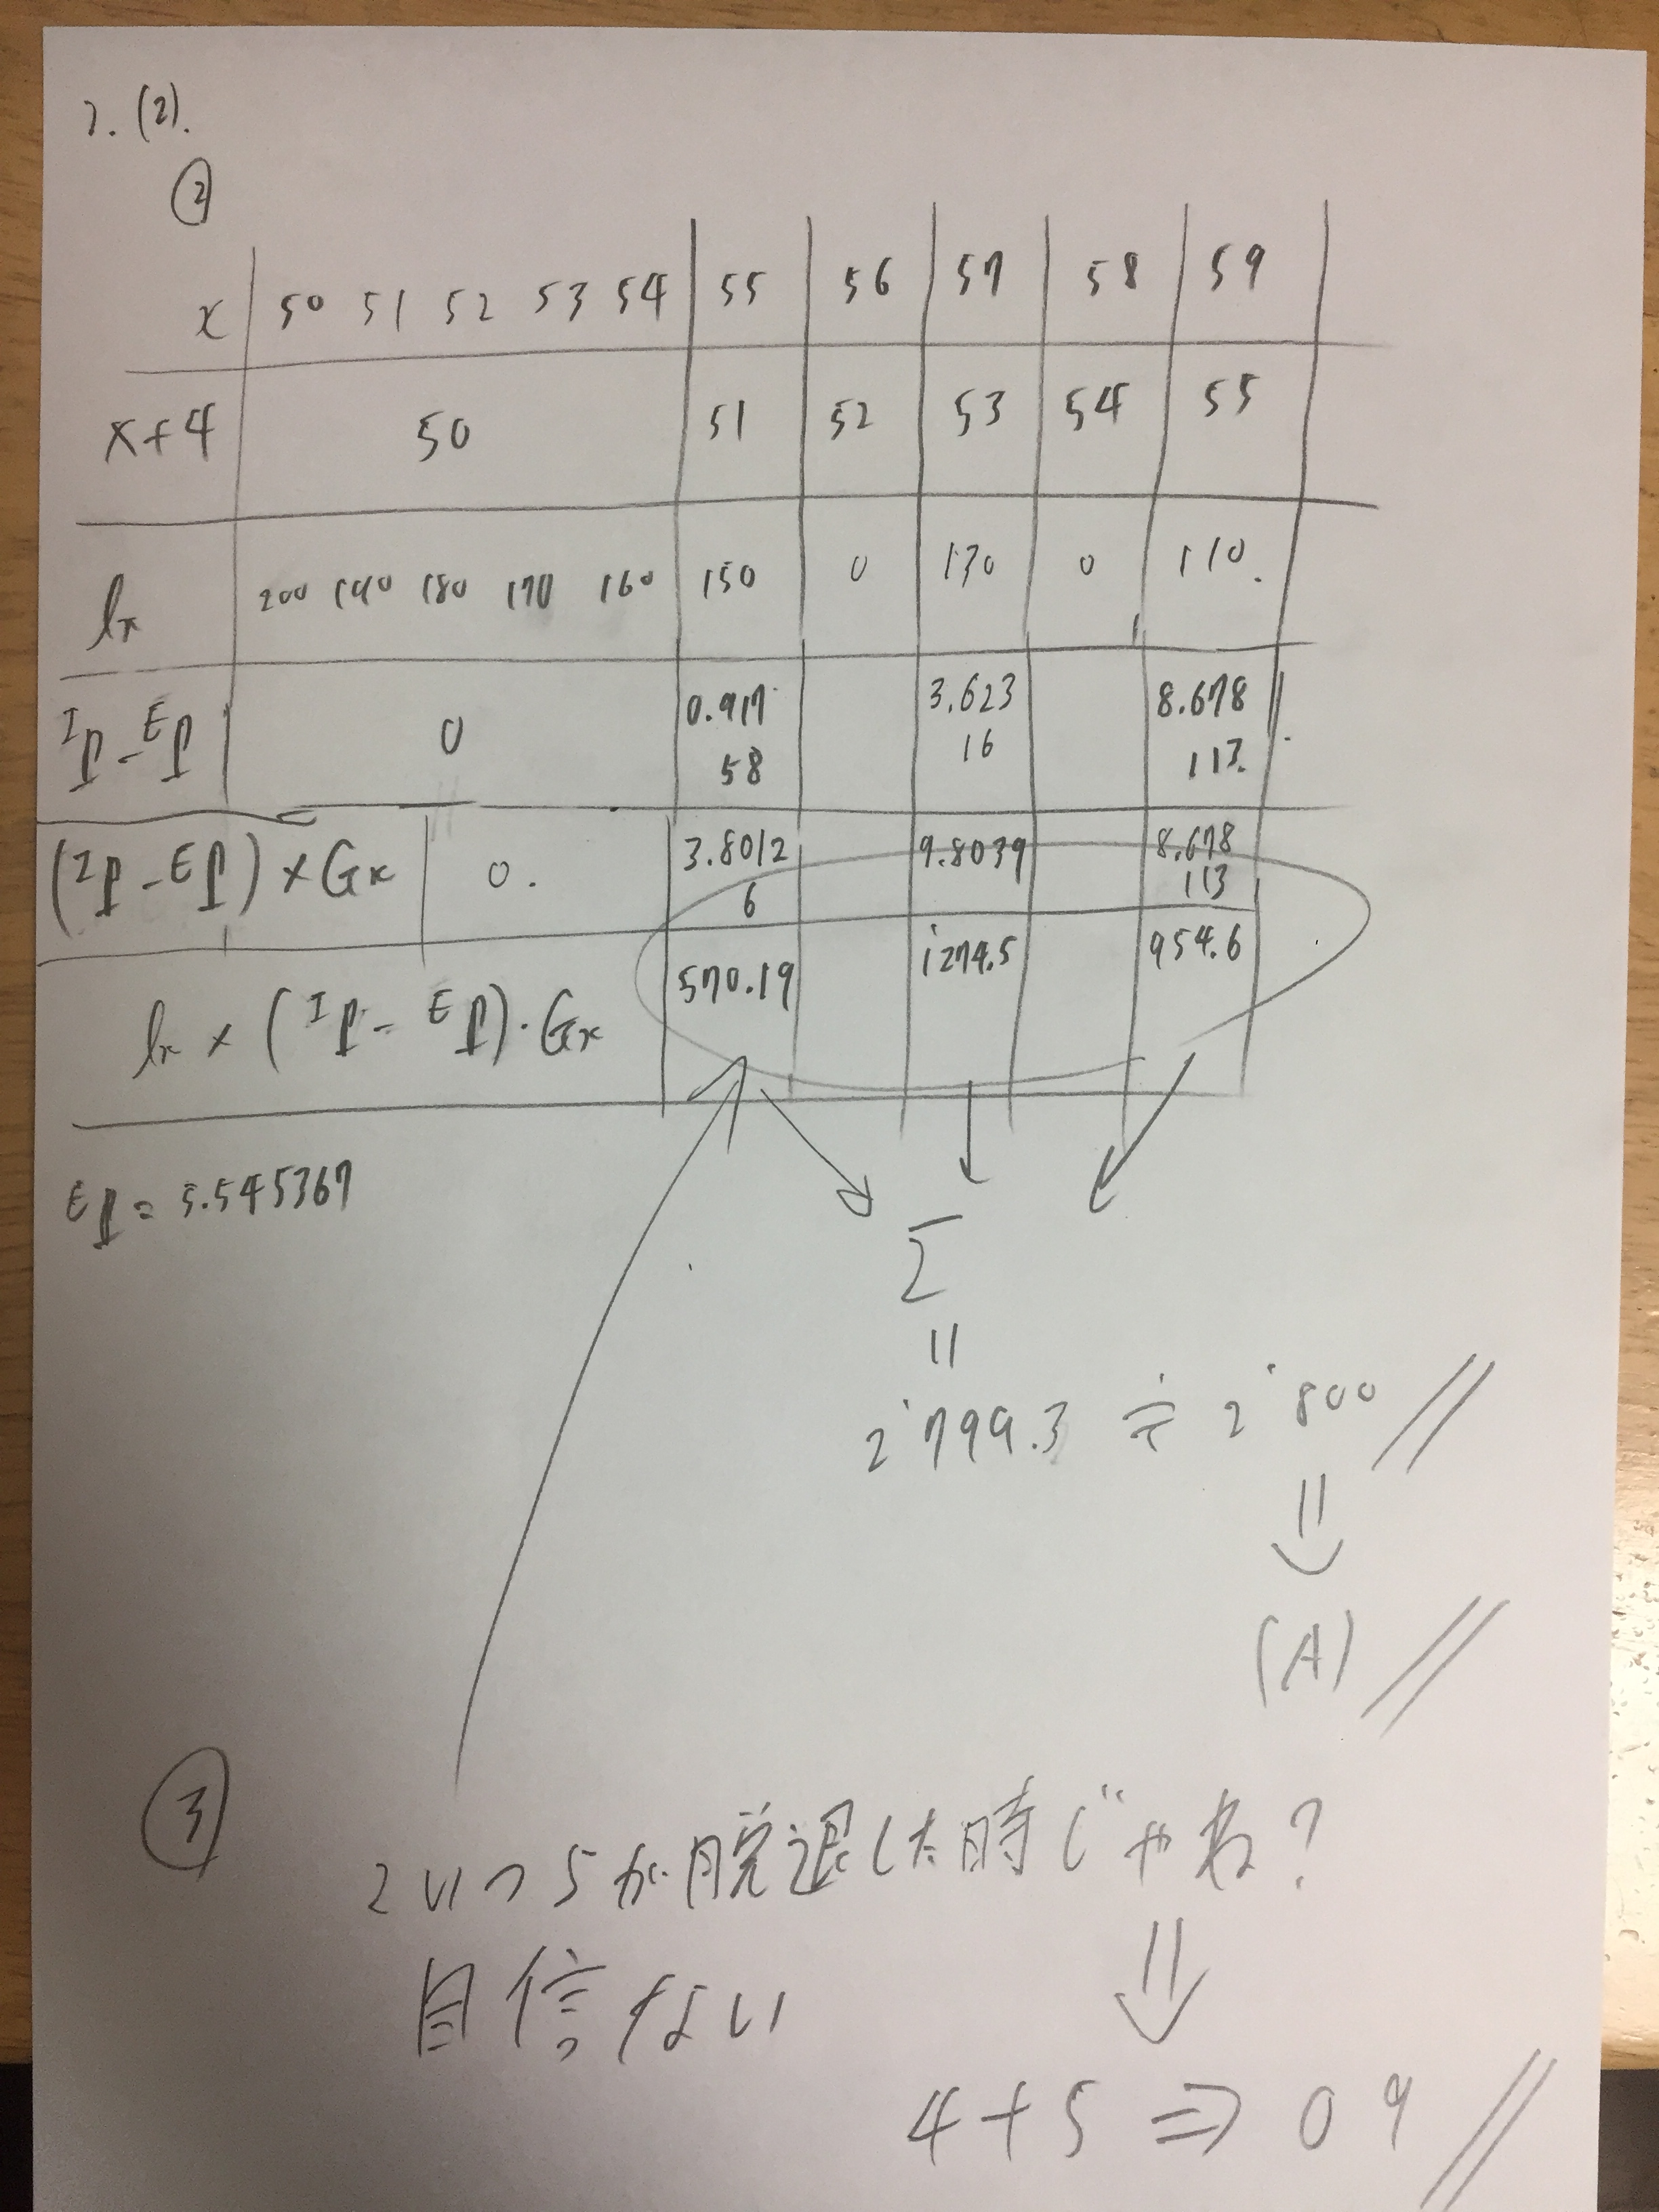 7. (2).
②
x 50 51 52 53 54 55 56 57 58 59
x+4 50 51 52 53 54 55
lx 200 190 180 170 160 150 0 130 0 110.
ᴵP-ᴱP 0 0.917 58 3.623 16 8.678 113.
(ᴵP-ᴱP)×Gx 0. 3.8012 6 9.8039 8.678 113
lx×(ᴵP-ᴱP)・Gx 570.19 1'274.5 954.6
ᴱP=5.545367
Σ
=
2'799.3 ≒ 2'800
⇓
(A)
③
こいつらが脱退した時じゃね?
自信ない
⇓
4+5 ⇒ 09